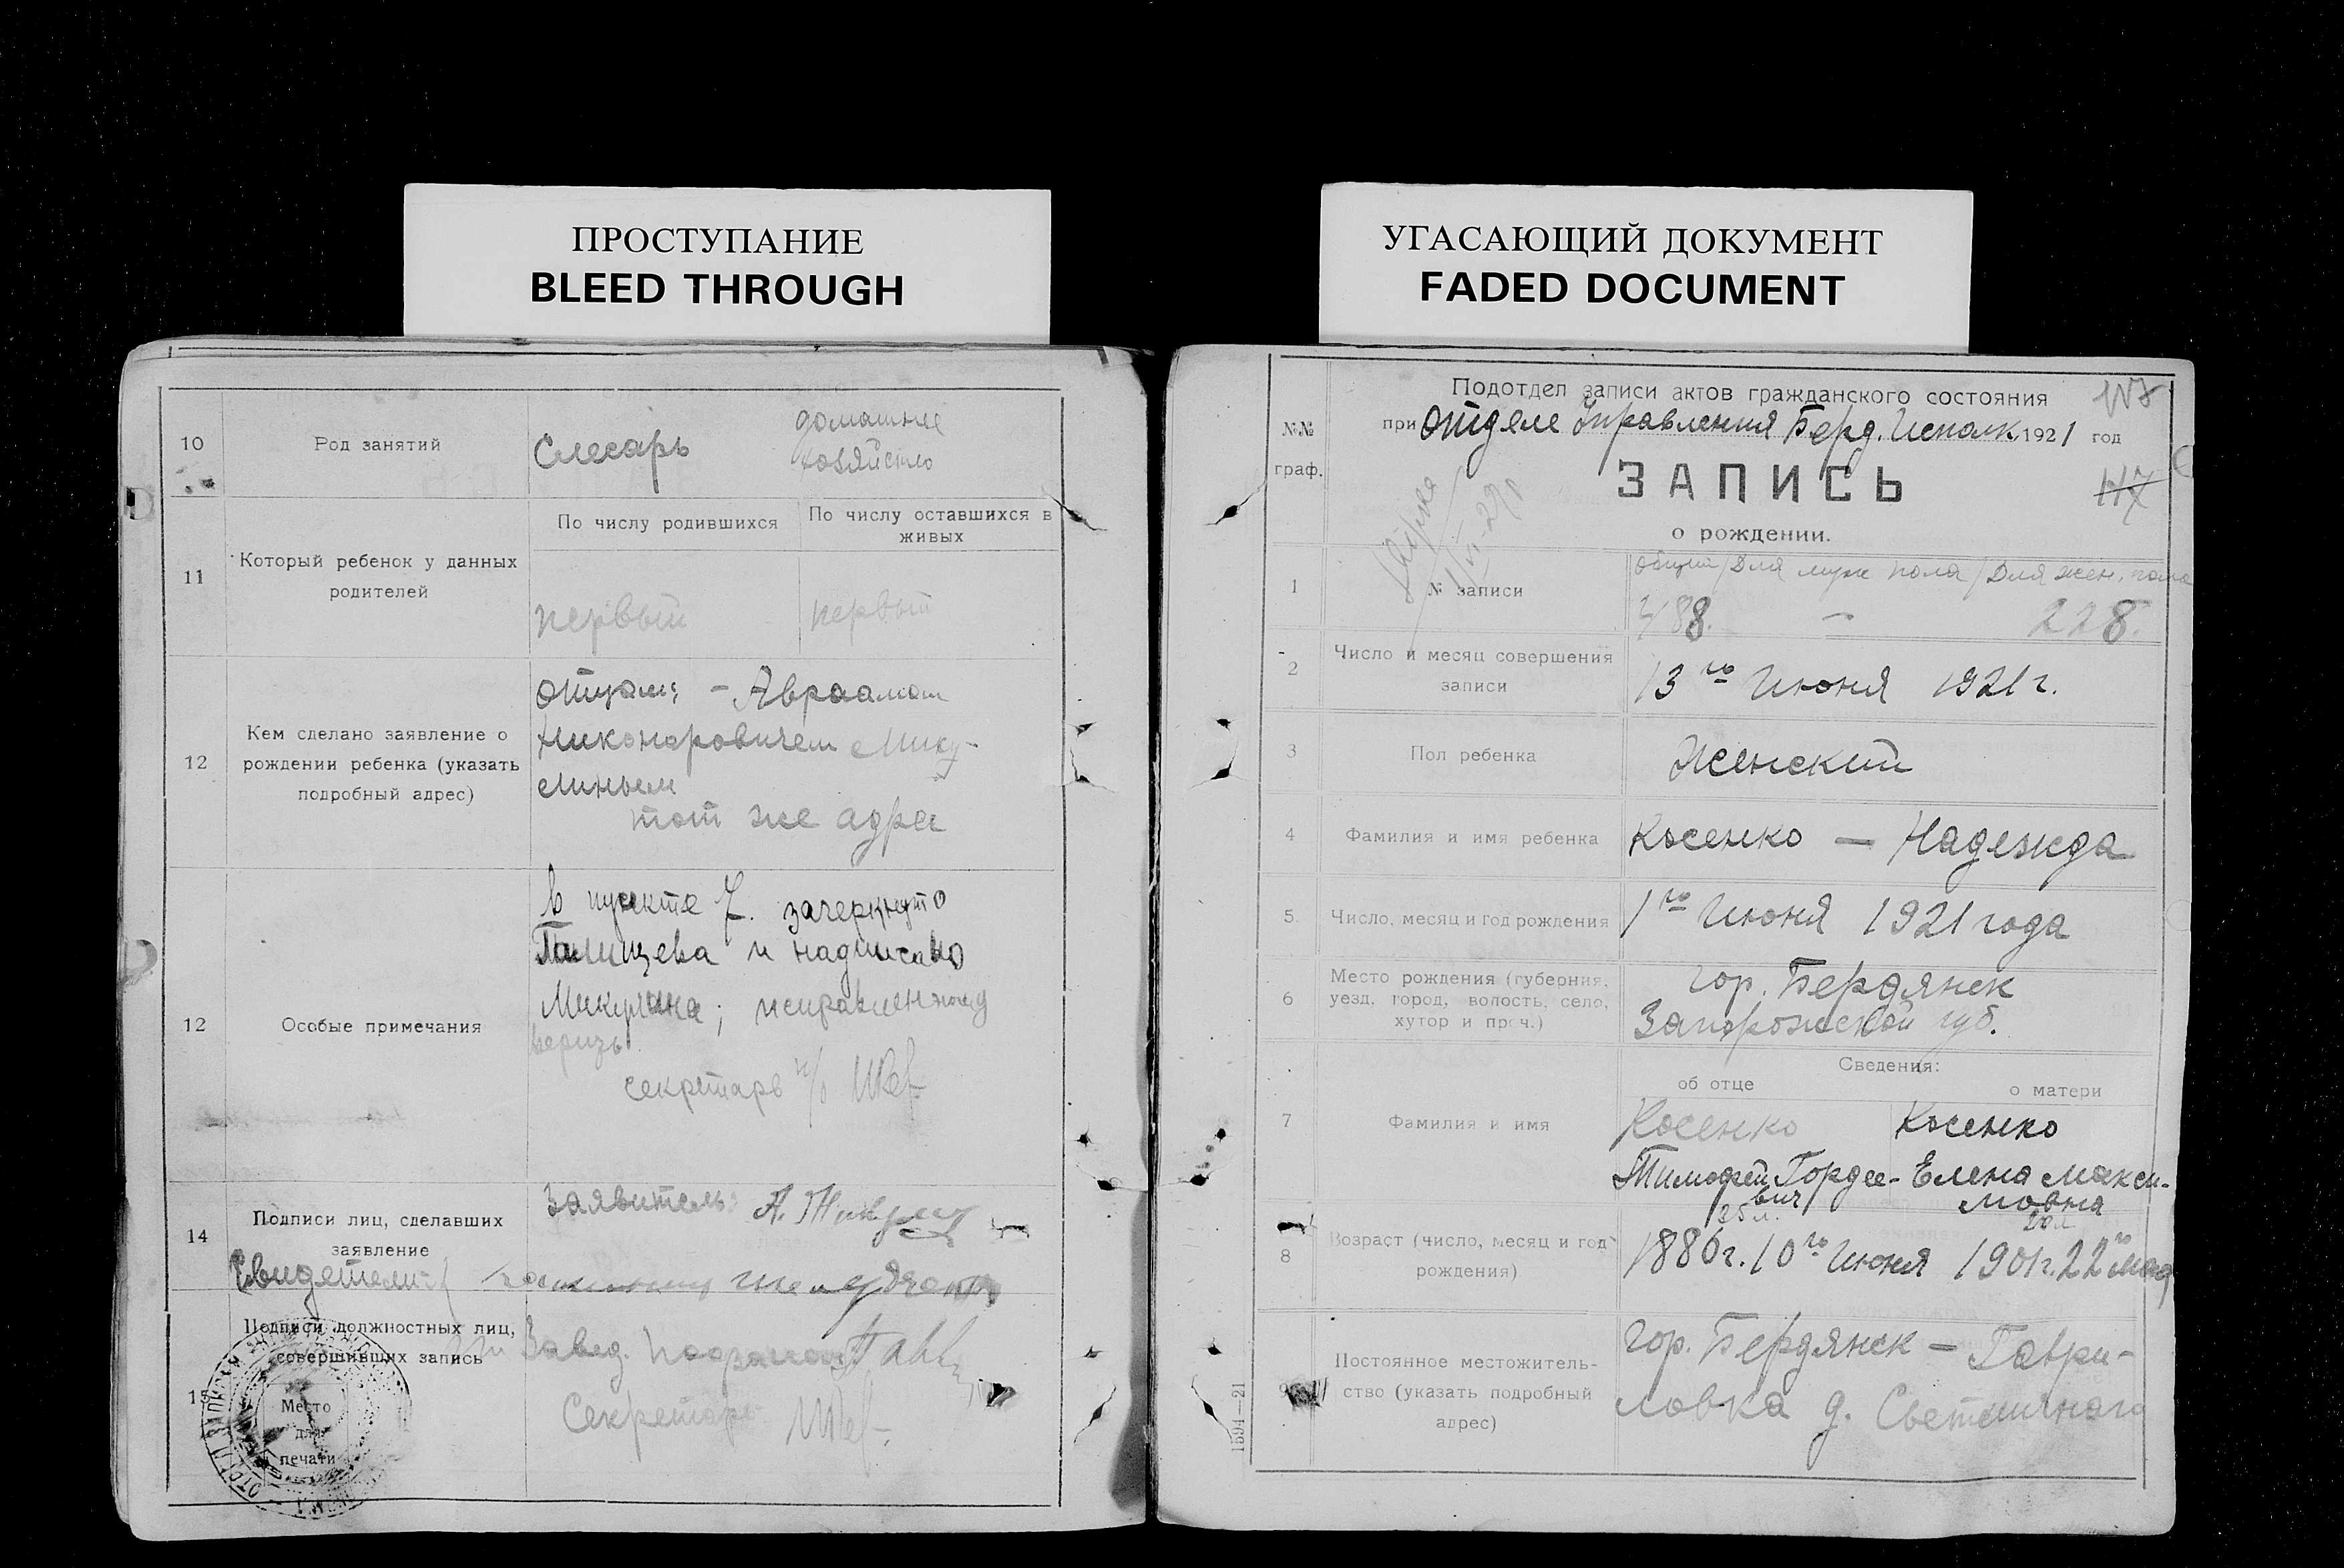 ПРОСТУПАНИЕ
BLEED THROUGH
УГАСАЮЩИЙ ДОКУМЕНТ
FADED DOCUMENT
10
Род занятий
Слесарь
домашнее
хозяйство
11
Который ребенок у данных
родителей
По числу родившихся
По числу оставшихся в
живых
первый
первый
12
Кем сделано заявление о
рождении ребенка (указать
подробный адрес)
отцом: - Авраамом
Никоноровичем Мику-
линым
тот же адрес
12
Особые примечания
в пункте 7. зачеркнуто
и надписано
Микулина; исправленному
верить
секретарь
14
Подписи лиц, сделавших
заявление
Заявитель: А.
Свидетели:
15
Подписи должностных лиц,
совершивших запись
Завед.
Секретарь
Место
для
печати
№№
граф.
Подотдел записи актов гражданского состояния
при отделе Управления Берд. Исполк 1921 год
ЗАПИСЬ
117
о рождении.
1
№ записи
общий / Для муж пола / Для жен. пола
488. — 228.
2
Число и месяц совершения
записи
13го Июня 1921 г.
3
Пол ребенка
Женский
4
Фамилия и имя ребенка
Косенко — Надежда
5.
Число, месяц и год рождения
1го Июня 1921 года
6
Место рождения (губерния,
уезд, город, волость, село,
хутор и проч.)
гор. Бердянск
Запорожской губ.
Сведения:
об отце
о матери
7
Фамилия и имя
Косенко
Тимофей Гордее-
вич
Косенко
Елена Макси-
мовна
8
Возраст (число, месяц и год
рождения)
35 л.
1886 г. 10го Июня
20 л
1901 г. 22го мая
Постоянное местожитель-
ство (указать подробный
адрес)
гор. Бердянск — Гаври-
ловка д. Светличного
1594—21